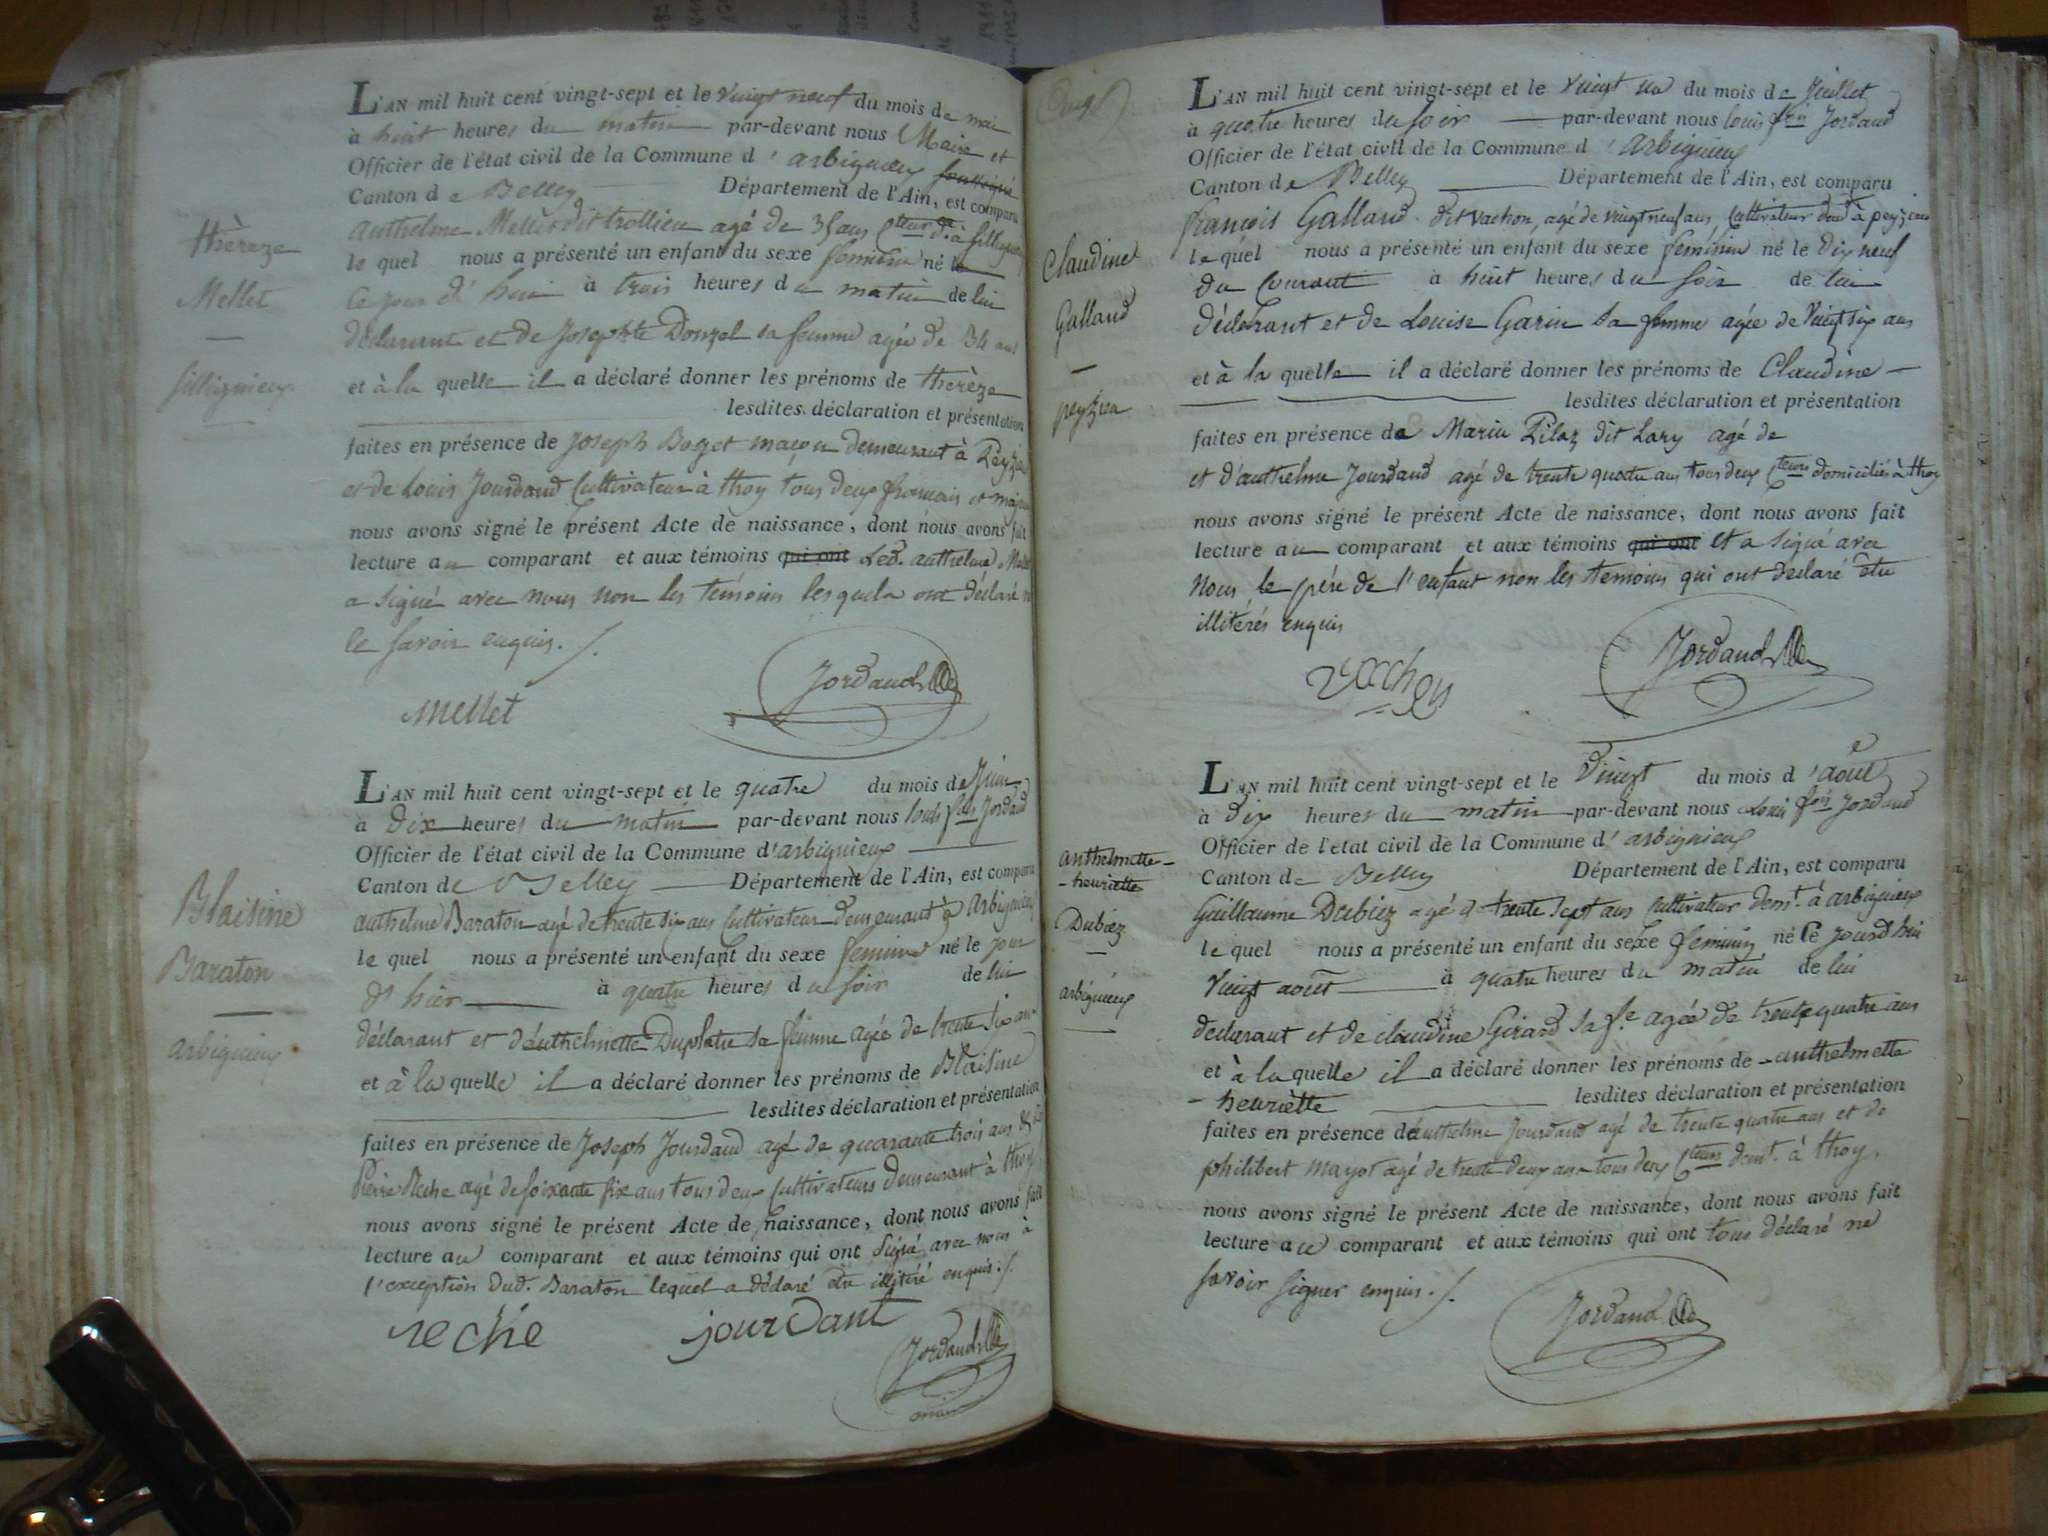 L'AN mil huit cent vingt-sept et le vingt neuf du mois de mai
à huit heures du matin par-devant nous Maire et
Officier de l'état civil de la Commune d'arbignieu soussigné
Canton de Belley Département de l'Ain, est comparu
anthelme Mellet dit trollieu agé de 35 ans Cteur dt à sillignieu
le quel nous a présenté un enfant du sexe feminin né le
Ce jour d'hui à trois heures du matin de lui
déclarant et de Josephte Donzel sa femme agée de 34 ans
et à la quelle il a déclaré donner les prénoms de thérèze
lesdites déclaration et présentation
faites en présence de Joseph Boget maçon demeurant à Peyzieu
et de Louis Jourdand Cultivateur à thoy tous deux français et majeurs
nous avons signé le présent Acte de naissance, dont nous avons fait
lecture au comparant et aux témoins qui ont Led. anthelme Mellet
a signé avec nous non les témoins lesquels ont déclaré ne
le savoir enquis ./.
Mellet
Jordand
thèreze
Mellet
Sillignieux
L'AN mil huit cent vingt-sept et le quatre du mois de Juin
à Dix heures du matin par-devant nous louis fçois Jordand
Officier de l'état civil de la Commune d'arbignieux
Canton de Belley Département de l'Ain, est comparu
anthelme Baraton agé de trente six ans Cultivateur demeurant à Arbignieux
le quel nous a présenté un enfant du sexe feminin né le jour
d'hier à quatre heures du soir de lui
déclarant et d'anthelmette Duplatre sa femme agée de trente six ans
et à la quelle il a déclaré donner les prénoms de Blaisine
lesdites déclaration et présentation
faites en présence de Joseph Jourdand agé de quarante trois ans & de
Pierre Reche agé de soixante six ans tous deux Cultivateurs demeurant à thoy
nous avons signé le présent Acte de naissance, dont nous avons fait
lecture au comparant et aux témoins qui ont signé avec nous à
l'exception dud. Baraton lequel a déclaré être illitéré enquis ./.
reche
jourdant
Jordand
Blaisine
Baraton
arbignieux
L'AN mil huit cent vingt-sept et le vingt un du mois de Juillet
à quatre heures du soir par-devant nous louis fçois Jordand
Officier de l'état civil de la Commune d'Arbignieux
Canton de Belley Département de l'Ain, est comparu
françois Galland dit vachon, agé de vingt neuf ans, Cultivateur demt à peyzieu
le quel nous a présenté un enfant du sexe féminin né le dix neuf
du Courant à huit heures du soir de lui
déclarant et de Louise Garin sa femme agée de Vingt six ans
et à la quelle il a déclaré donner les prénoms de Claudine
lesdites déclaration et présentation
faites en présence de Marin Pilaz dit Lary agé de
et d'anthelme Jourdand agé de trente quatre ans tous deux Cteurs domiciliés à thoy
nous avons signé le présent Acte de naissance, dont nous avons fait
lecture au comparant et aux témoins qui ont et a signé avec
Nous, le père de l'enfant non les témoins qui ont déclaré être
illitérés enquis
vachon
Jordand
Claudine
Galland
peyzieu
L'AN mil huit cent vingt-sept et le Vingt du mois d'août
à dix heures du matin par-devant nous Louis fçois Jordand
Officier de l'état civil de la Commune d'arbignieux
Canton de Belley Département de l'Ain, est comparu
Guillaume Dubiez agé de trente sept ans Cultivateur demt. à arbignieux
le quel nous a présenté un enfant du sexe feminin né le jourd'hui
Vingt août à quatre heures du matin de lui
declarant et de claudine Girard sa fe agée de trente quatre ans
et à la quelle il a déclaré donner les prénoms de anthelmette
henriette lesdites déclaration et présentation
faites en présence d'anthelme Jourdand agé de trente quatre ans et de
philibert mayot agé de trente deux ans tous deux Cteurs demt. à thoy,
nous avons signé le présent Acte de naissance, dont nous avons fait
lecture au comparant et aux témoins qui ont tous déclaré ne
savoir signer enquis ./.
Jordand
anthelmette
henriette
Dubiez
arbignieux